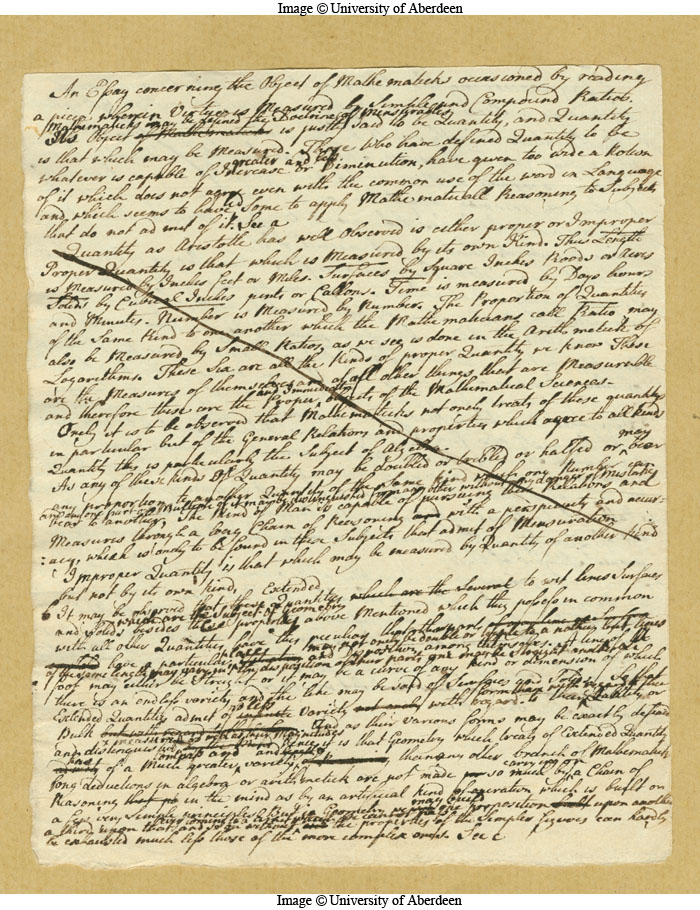 Image © University of Aberdeen
An Essay concerning the Object of Mathematicks occasioned by reading
a piece wherein Virtue is Measured by Simple and Compound Ratios.
Mathematicks may be defined the Doctrine of Mensuration
Its Object of Mathematicks is justly said to be Quantity, and Quantity
is that which may be Measured. Those who have defined Quantity to be
greater and less
whatever is capable of Increase or Diminution, have given too wide a Notion
of it which does not agree even with the common use of the word in Language
and which seems to have led some to apply Mathematicall Reasoning to Subjects
that do not admit of it. See a
Quantity as Aristotle has well Observed is either proper or Improper
Proper Quantity is that which is Measured by its own Kind. Thus Length
is Measured by Inches feet or Miles. Surfaces by Square Inches Roods or Acres
Solids by Cubical Inches pints or Gallons. Time is measured by Days hours
and Minutes. Number is Measured by Number. The Proportion of Quantities
of the Same Kind to one another which the Mathematicians call Ratio, may
also be Measured by Small Ratios, as we see is done in the Arithmetick of
Logarithms. These Six are all the Kinds of proper Quantity we know These
are the Measures of themselves and of all other things, that are Measurable
and Immediate
and therefore these are the proper objects of the Mathematical Sciences.
Onely it is to be observed that Mathematicks not onely treats of these quantitys
in particular but of the General Relations and properties which agree to all kinds
Quantity this is particularly the Subject of Algebra
As any of these kinds of Quantity may be doubled or trebled or halfed or may bear
any proportion to another Quantity of the same kind
bear to another, The Mind of Man is capable of pursuing these Relations and
Measures through a long Chain of Reasoning and with a perspicuity and accur-
:acy, which is onely to be found in these Subjects that admit of Mensuration
Improper Quantity is that which may be measured by Quantity of another kind
but not by its own kind. Extended
It may be observed that these Quantities which are the Several to wit lines Surfaces
which are the Subject of Geometry
and Solids besides these properties above Mentioned which they possess in common
with all other Quantities have this peculiar
foot may either be Straight or it may be a curve of any kind or dimension of which
there is an endless variety and the like may be said of Surfaces and Solids
Extended Quantities admit of no less variety with regard to
Bulk And as their various forms may be exactly defined
and distinguished it is that Geometry which treats of Extended Quantity
has of a Much greater variety than any other Branch of Mathematicks
carrying on
long deductions in algebra or arithmetick are not made so much by a Chain of
Reasoning in the mind as by an artificial kind of operation which is built on
a few very simple principles But in Geometry
a third upon that and so on without
the properties of the simpler figures can hardly
be exhausted much less those of the more complex ones. See c
Image © University of Aberdeen